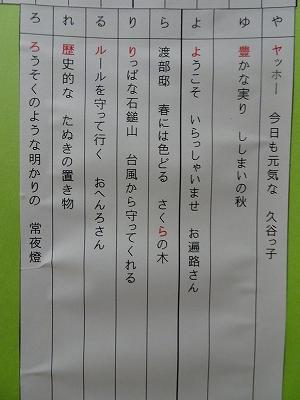 や ヤッホー 今日も元気な 久谷っ子
ゆ 豊かな実り ししまいの秋
よ ようこそ いらっしゃいませ お遍路さん
ら 渡部邸 春には色どる さくらの木
り りっぱな石鎚山 台風から守ってくれる
る ルールを守って行く おへんろさん
れ 歴史的な たぬきの置き物
ろ ろうそくのような明かりの 常夜燈